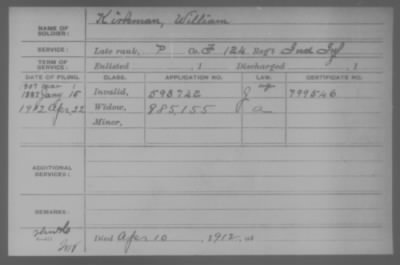 NAME OF SOLDIER: Kirkman, William
SERVICE: Late rank, P Co. F, 124 Reg't Ind Inf
TERM OF SERVICE: Enlisted , 1 Discharged , 1
DATE OF FILING. CLASS. APPLICATION NO. LAW. CERTIFICATE NO.
1887 Jany. 15 Invalid, 593742 g 799546
1912 Apr. 22 Widow, 985,155 a
Minor,
ADDITIONAL SERVICES:
REMARKS:
Died Apr 10 , 1912, at